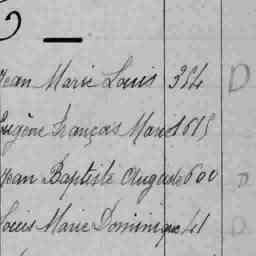 Jean Marie Louis 354 D
Eugène François Marie 1615
Jean Baptiste Auguste 600 D
Louis Marie Dominique 41 D